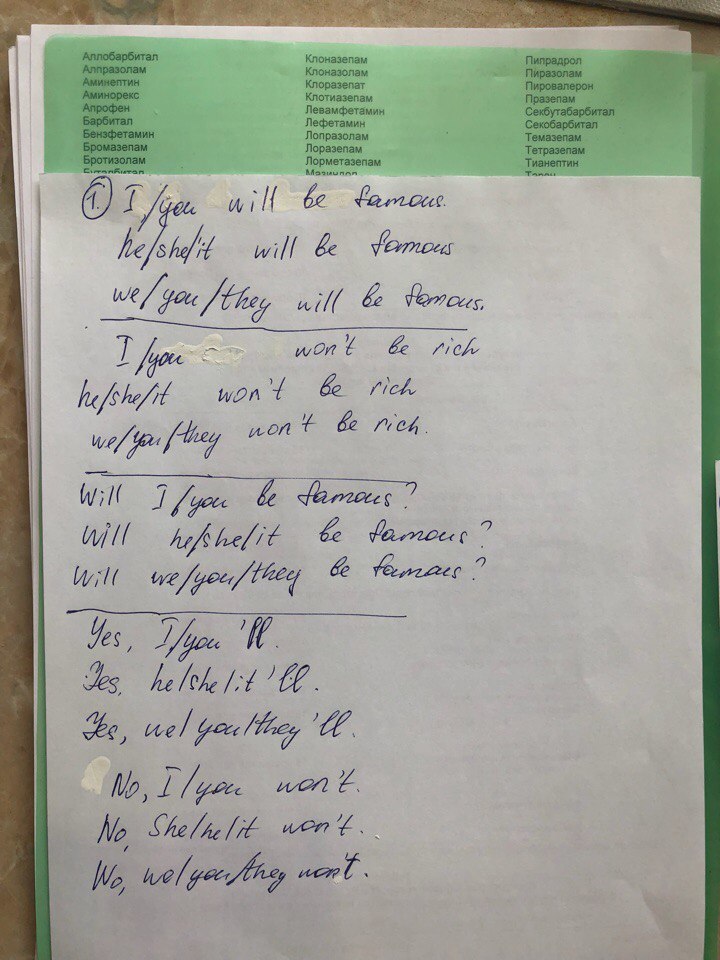 Аллобарбитал Клоназепам Пипрадрол
Алпразолам Клоназолам Пиразолам
Аминептин Клоразепат Пировалерон
Аминорекс Клотиазепам Празепам
Апрофен Левамфетамин Секбутабарбитал
Барбитал Лефетамин Секобарбитал
Бензфетамин Лопразолам Темазепам
Бромазепам Лоразепам Тетразепам
Бротизолам Лорметазепам Тианептин
Буталбитал Мазиндол
1. I/you will be famous.
he/she/it will be famous
we/you/they will be famous.
I/you won't be rich
he/she/it won't be rich
we/you/they won't be rich.
Will I/you be famous?
Will he/she/it be famous?
Will we/you/they be famous?
Yes, I/you 'll.
Yes, he/she/it 'll.
Yes, we/you/they 'll.
No, I/you won't.
No, She/he/it won't.
No, we/you/they won't.